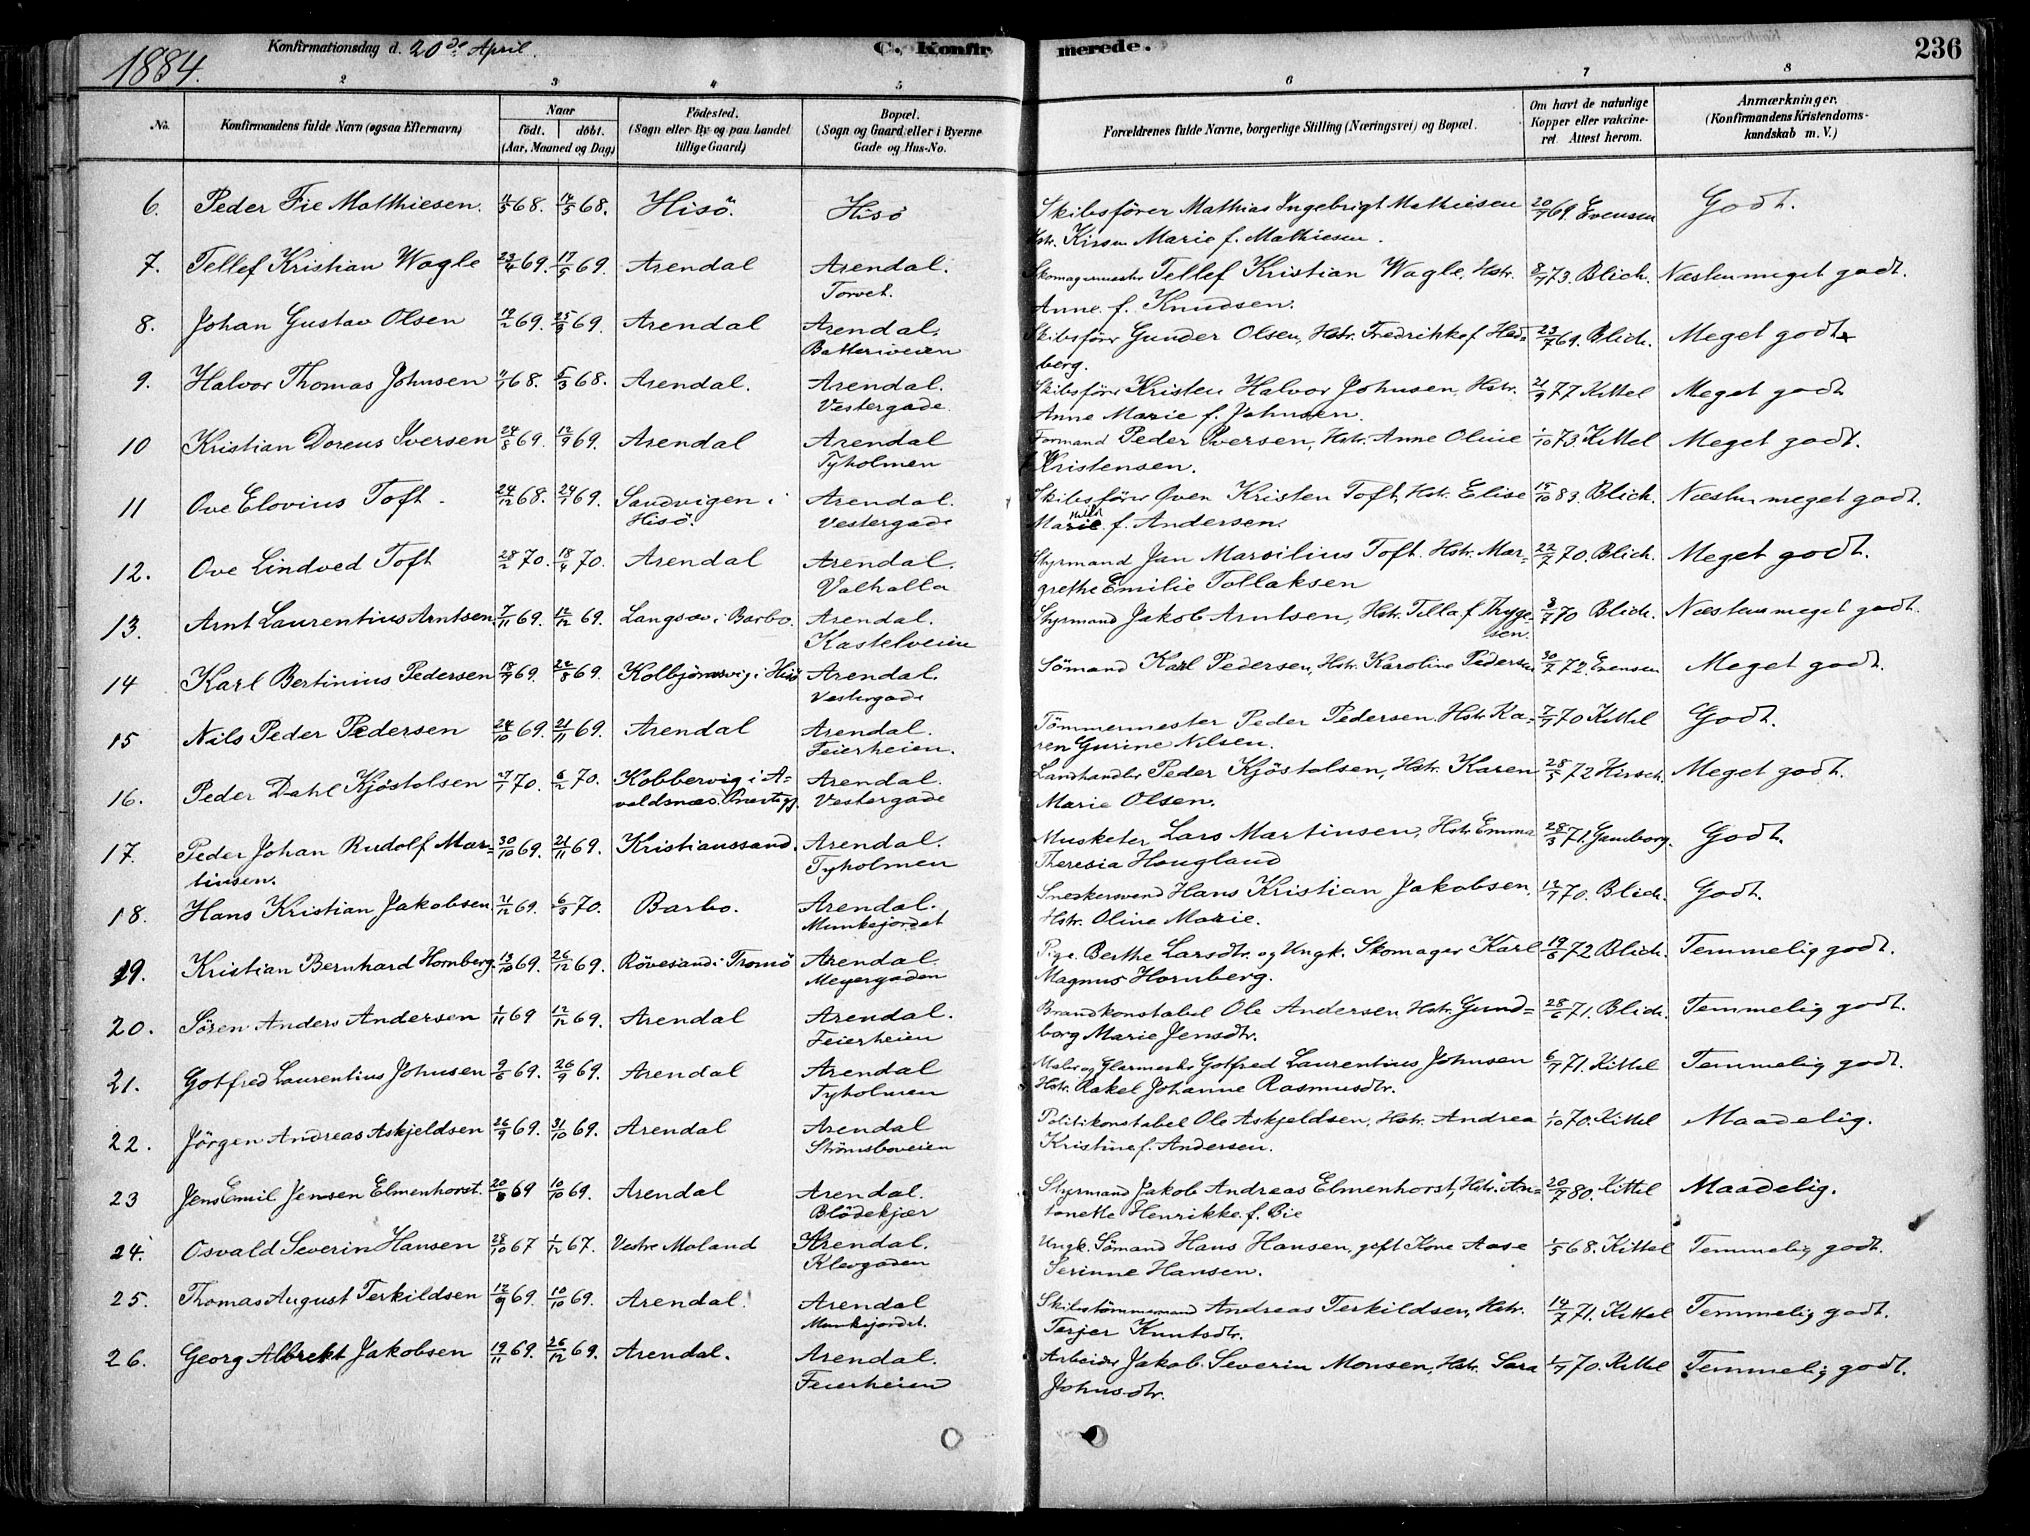 1884. Konfirmationsdag d. 20de April. C. Konfirmerede. 236
2 3 4 5 6 7 8
No. Konfirmandens fulde Navn (ogsaa Efternavn) Naar født. døbt. (Aar, Maaned og Dag) Födested. (Sogn eller By og paa Landet tillige Gaard) Bopæl. (Sogn og Gaard, eller i Byerne Gade og Hus-No. Forældrenes fulde Navne, borgerlige Stilling (Næringsvei) og Bopæl. Om havt de naturlige Kopper eller vakcineret Attest herom. Anmærkninger. (Konfirmandens Kristendomskundskab m. V.)
6. Peder Fie Matthiesen. 11/5 68. 14/5 68. Hisö. Hisö Skibsförer Mathias Ingebrigt Mathiesen 20/7 69. Evensen Godt.
Hstr. Marie f. Mathiesen.
7. Tellef Kristian Wagle 23/4 69. 17/5 69. Arendal Arendal. Skomagermester Tellef Kristian Wagle, Hstr. 8/7 73. Blich. Næsten meget godt.
Torvet. Anne f. Knudsen.
8. Johan Gustav Olsen 19/2 69. 25/9 69. Arendal Arendal. Skibsförer Gunder Olsen, Hstr. Fredrikke f. Hed- 23/7 69. Blich. Meget godt
Batteriveien berg.
9. Halvor Thomas Johnsen 68. 5/3 68. Arendal. Arendal. Skibsförer Kristen Halvor Johnsen, Hstr. 21/9 77 Kittel Meget godt
Vestergade. Anne Marie f. Johnsen.
10 Kristian Doreus Iversen 24/8 69. 12/9 69. Arendal Arendal Formand Peder Iversen, Hstr. Anne Oline 1/10 73 Kittel Meget godt.
Tyholmen Kristensen.
11 Ove Elovius Toft. 24/12 68. 24/1 69. Sandvigen i Arendal. Skibsförer Oven Kristen Toft, Hstr. Elise 15/10 83. Blich. Næsten meget godt.
Hisö. Vestergade Marie f. Andersen.
12. Ove Lindved Toft 28/2 70. 18/4 70. Arendal Arendal. Styrmand Jan Marsilius Toft. Hstr. Mar- 22/7 70. Blich. Meget godt.
Valhalla grethe Emilie Tollaksen
13. Arnt Laurentius Arntsen 7/11 69. 12/12 69. Langsæv i Barbo. Arendal. Styrmand Jakob Arntsen, Hstr. Tilla f. Thyge- 8/7 70 Blich. Næsten meget godt.
Kastelveien sen.
14 Karl Bertinius Pedersen 18/7 69. 22/8 69. Kolbjörnsvig i Hisö Arendal. Sömand Karl Pedersen, Hstr. Karoline Pedersen 30/7 72. Evensen Meget godt.
Vestergade
15 Nils Peder Pedersen 24/10 69. 21/11 69. Arendal Arendal. Tömmermester Peder Pedersen. Hstr. Ka- 7/7 70 Kittel Godt.
Feierheien. ren Gurine Nilsen.
16. Peder Dahl Kjöstolsen 27/1 70. 6/2 70. Kobbervig i A- Arendal. Landhandler Peder Kjöstolsen, Hstr. Karen 28/5 72 Hirsch. Meget godt.
valdsnæs Vestergade Marie Olsen.
17. Peder Johan Rudolf Mar- 30/10 69. 21/11 69. Kristianssand. Arendal. Musketer Lars Martinsen, Hstr. Emma 28/3 71. Gamborg. Godt.
tinsen. Tyholmen Theresia Hougland
18. Hans Kristian Jakobsen 21/12 69. 6/3 70. Barbo. Arendal. Snedkersvend Hans Kristian Jakobsen. 12/7 70. Blich. Godt.
Munkejordet Hstr. Oline Marie.
19. Kristian Bernhard Hornberg. 13/10 69. 26/12 69. Rövesand i Tromö Arendal. Pige Berthe Larsdtr. og Ungk. Skomager Karl 19/6 72 Blich. Temmelig godt.
Meyergaden Magnus Hornberg.
20. Sören Anders Andersen 1/11 69 12/12 69. Arendal Arendal. Brandkonstabel Ole Andersen Hstr. Gund- 28/6 71. Blich. Temmelig godt.
Feierheien borg Marie Jensdtr.
21. Gotfred Laurentius Johnsen 9/6 69. 26/9 69. Arendal Arendal Maler og Glarmester Gotfred Laurentius Johnsen 6/7 71. Kittel Temmelig godt.
Tyholmen Hstr. Rakel Johanne Rasmusdtr.
22. Jörgen Andreas Askjeldsen 26/9 69. 31/10 69. Arendal Arendal Politikonstabel Ole Askjeldsen, Hstr. Andrea 1/10 70. Kittel Maadelig.
Strömsboveien Kristine f. Andersen.
23 Jens Emil Jensen Elmenhorst. 20/8 69 10/10 69. Arendal Arendal. Styrmand Jakob Andreas Elmenhorst, Hstr. An- 20/7 80. Kittel Maadelig.
Blödekjær tonette Henrikke f. Bie
24. Osvald Severin Hansen 28/10 67 1/12 67. Vestre Moland Arendal. Ungk. Sömand Hans Hansen, gift Kone Aase 1/5 68. Kittel Temmelig godt.
Klevgaden Serinne Hansen.
25. Thomas August Terkildsen 12/9 69. 10/10 69. Arendal. Arendal Skibstömmermand Andreas Terkildsen, Hstr. 14/7 71. Kittel Temmelig godt.
Munkejordet. Terjer Knutsdtr.
26. Georg Albrekt Jakobsen 19/11 69. 26/12 69. Arendal. Arendal. Arbeider Jakob Severin Monsen, Hstr. Sara 1/7 70. Kittel Temmelig godt.
Feierheien Johnsdtr.